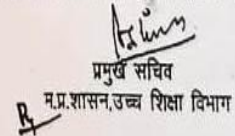 प्रमुख सचिव
म.प्र.शासन,उच्च शिक्षा विभाग